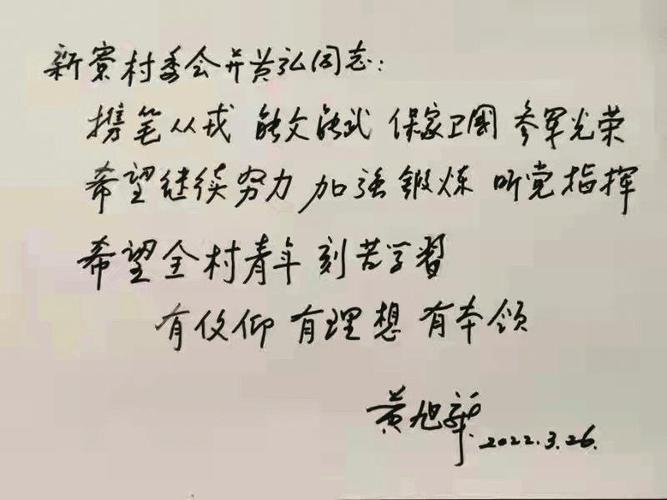 新寮村委会并黄弘同志：
携笔从戎 能文能武 保家卫国 参军光荣
希望继续努力 加强锻炼 听党指挥
希望全村青年刻苦学习
有信仰 有理想 有本领
黄旭华 2022.3.26.